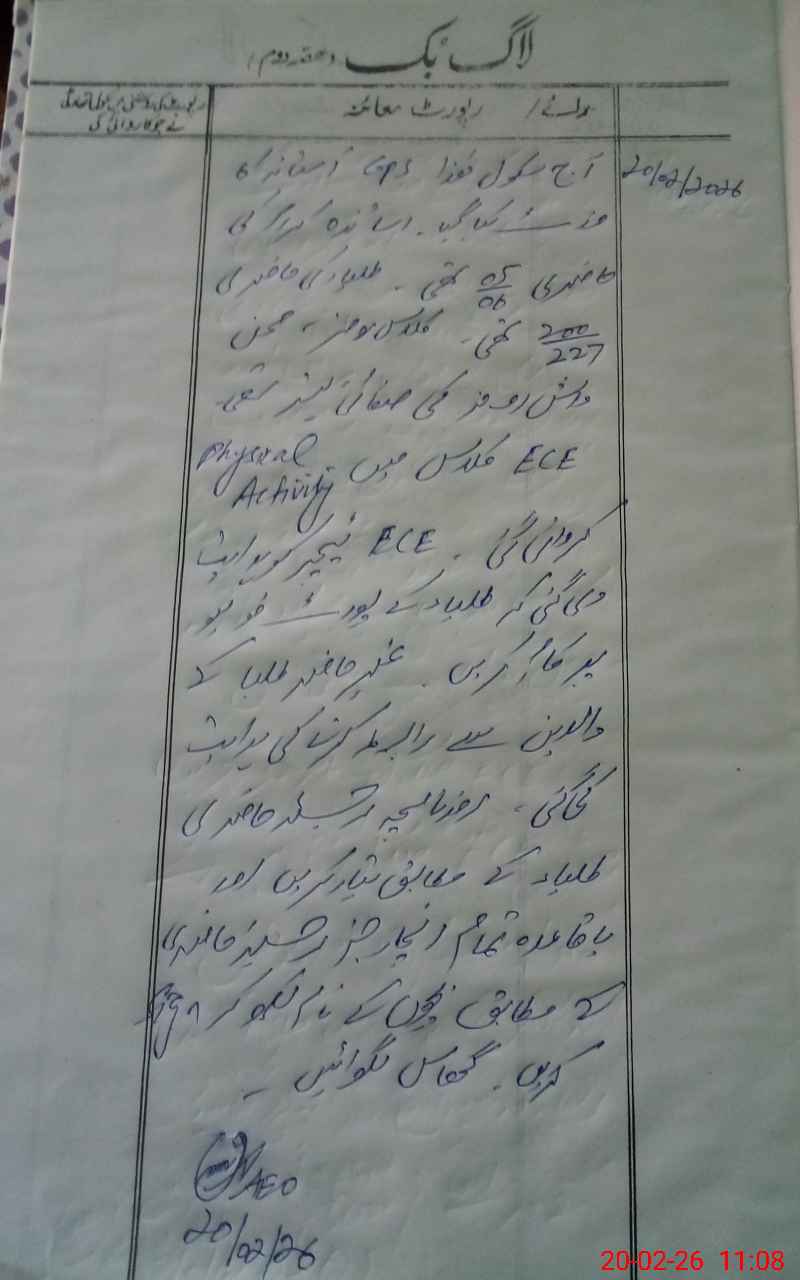 لاگ بک (حصہ دوم)
برائے / رپورٹ معائنہ
رپورٹ کی روشنی میں
نے جو کاروائی کی
20/02/2026
آج سکول ہذا GPS کا
وزٹ کیا گیا۔ اساتذہ کرام کی
حاضری 05/06 تھی۔ طلباء کی حاضری
200/227 تھی۔ کلاس رومز، صحن
واش رومز کی صفائی بہتر تھی۔
ECE کلاس میں Physical
Activity
کروائی گئی۔ ECE ٹیچر کو ہدایت
دی گئی کہ طلباء کے پورٹ فولیو
پر کام کریں۔ غیر حاضر طلبا کے
والدین سے رابطہ کرنا کی ہدایت
کی گئی۔ روزنامچہ رجسٹر حاضری
طلباء کے مطابق تیار کریں اور
باقاعدہ تمام انچارجز رجسٹر حاضری
کے مطابق بچوں کے نام لکھ کر Sign
کریں۔ گھاس لگوائیں۔
AEO
20/02/26
20-02-26 11:08